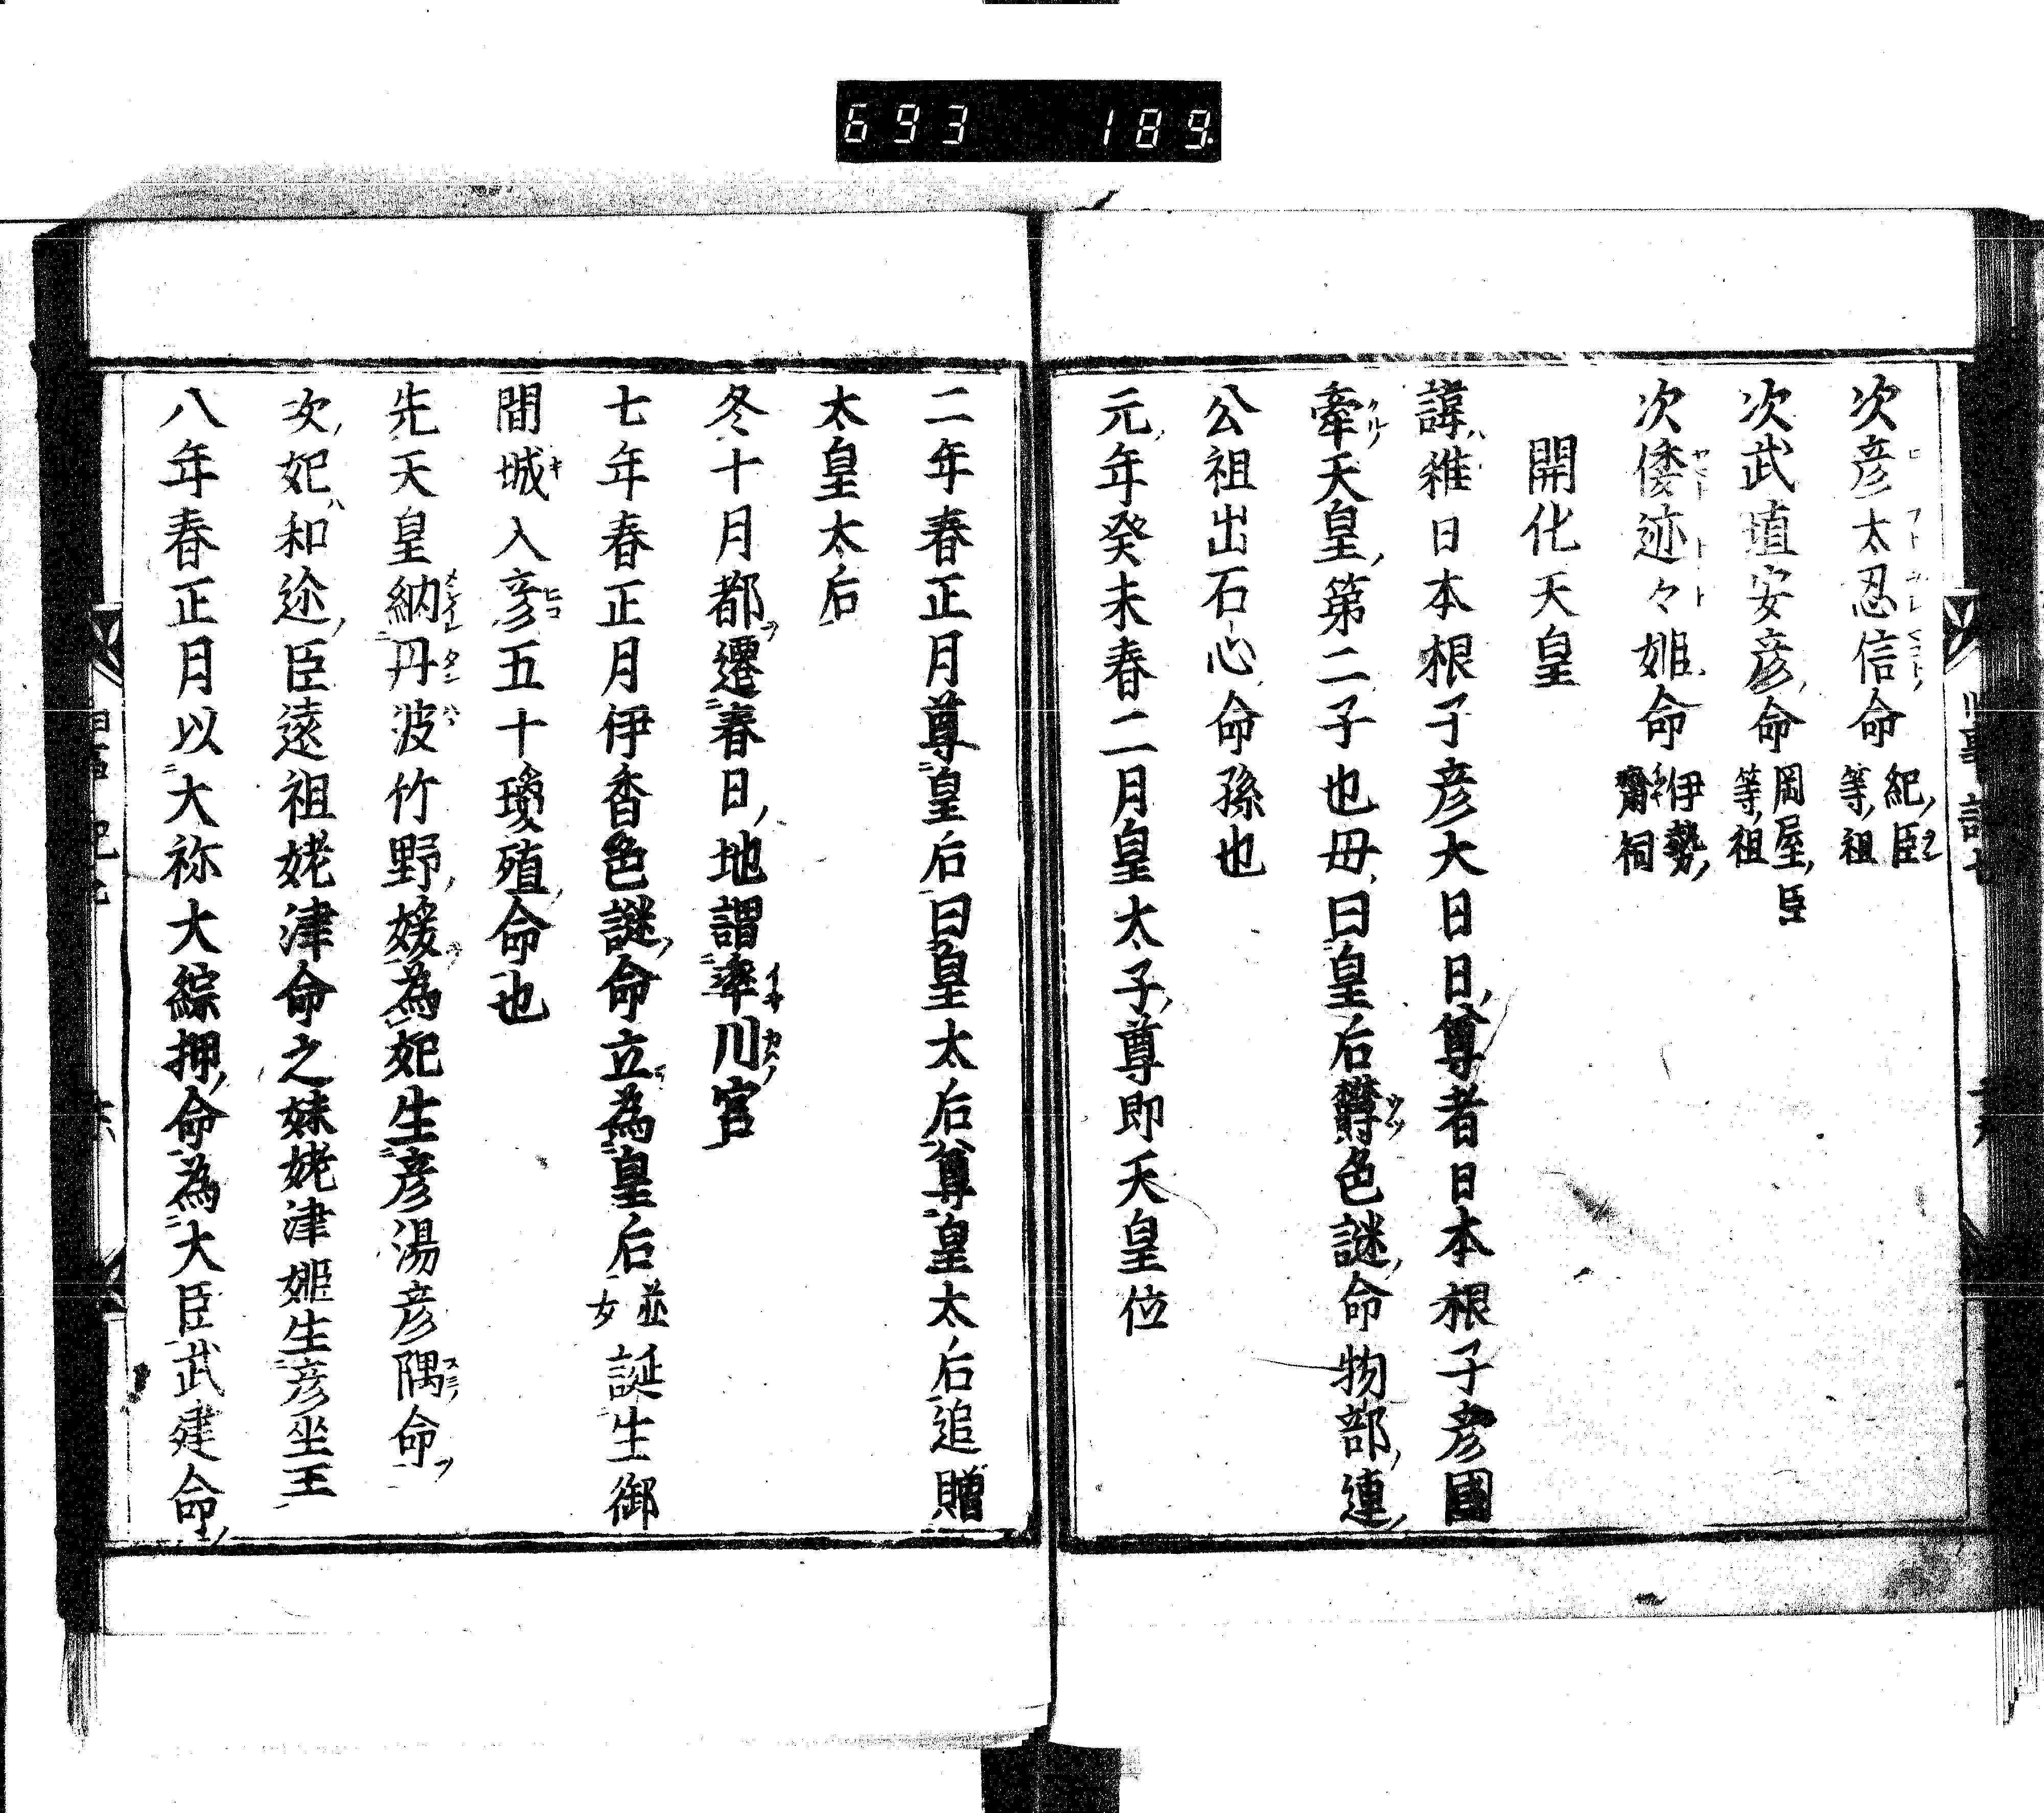 693 189
次彦太忍信命 紀臣等祖
次武埴安彦命 岡屋臣等祖
次倭迹々姫命 伊勢齋祠
開化天皇
諱稚日本根子彦大日日尊者日本根子彦國
牽天皇第二子也母曰皇后欝色謎命物部連
公祖出石心命孫也
元年癸未春二月皇太子尊即天皇位
二年春正月尊皇后曰皇太后尊皇太后追贈
太皇太后
冬十月都遷春日地謂率川宮
七年春正月伊香色謎命立為皇后並女誕生御
間城入彦五十瓊殖命也
先天皇納丹波竹野媛為妃生彦湯彦隅命
次妃和迩臣遠祖姥津命之妹姥津姫生彦坐王
八年春正月以大祢大綜押命為大臣武建命